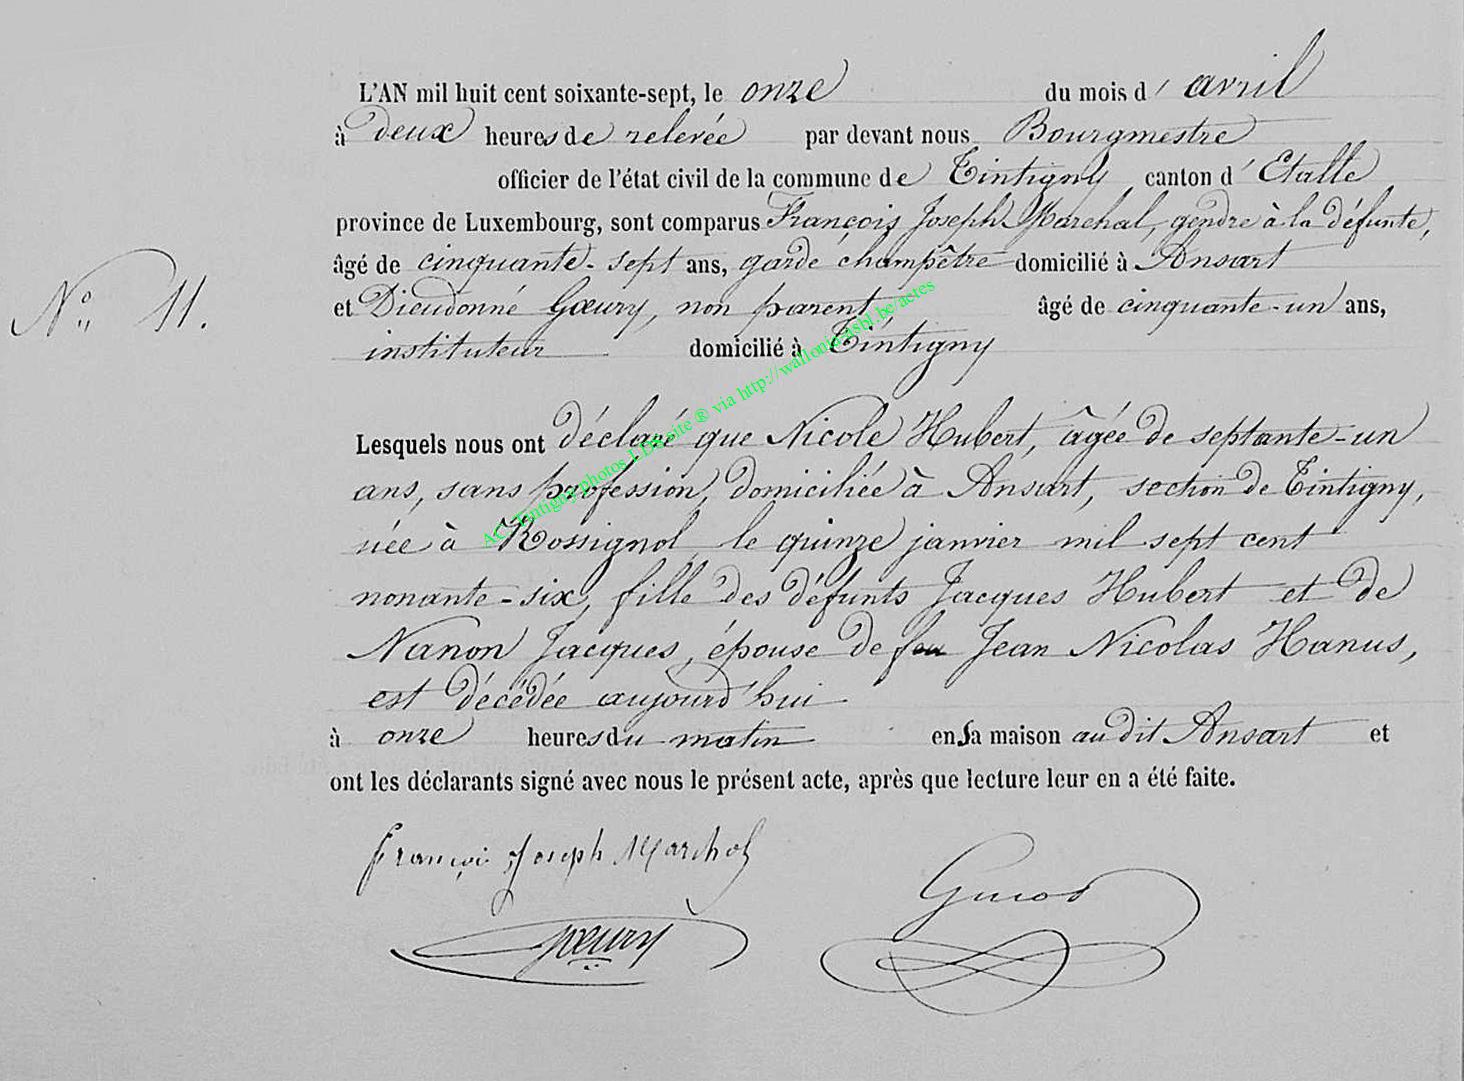 L'AN mil huit cent soixante-sept, le onze du mois d'avril
à deux heures de relevée par devant nous Bourgmestre
officier de l'état civil de la commune de Tintigny, canton d'Etalle
province de Luxembourg, sont comparus François Joseph Marchal, gendre à la défunte,
âgé de cinquante-sept ans, garde champêtre domicilié à Ansart
N° 11.
et Dieudonné Gœury, non parent, âgé de cinquante-un ans,
instituteur domicilié à Tintigny
Lesquels nous ont déclaré que Nicole Hubert, âgée de septante-un
ans, sans profession, domiciliée à Ansart, section de Tintigny,
née à Rossignol, le quinze janvier mil sept cent
nonante-six, fille des défunts Jacques Hubert et de
Nanon Jacques, épouse de feu Jean Nicolas Hanus,
est décédée aujourd'hui
à onze heures du matin en sa maison au dit Ansart et
ont les déclarants signé avec nous le présent acte, après que lecture leur en a été faite.
François Joseph Marchal
Gœury
AC Tintigny photos LDS site ® via http://wallonia-asbl.be/actes